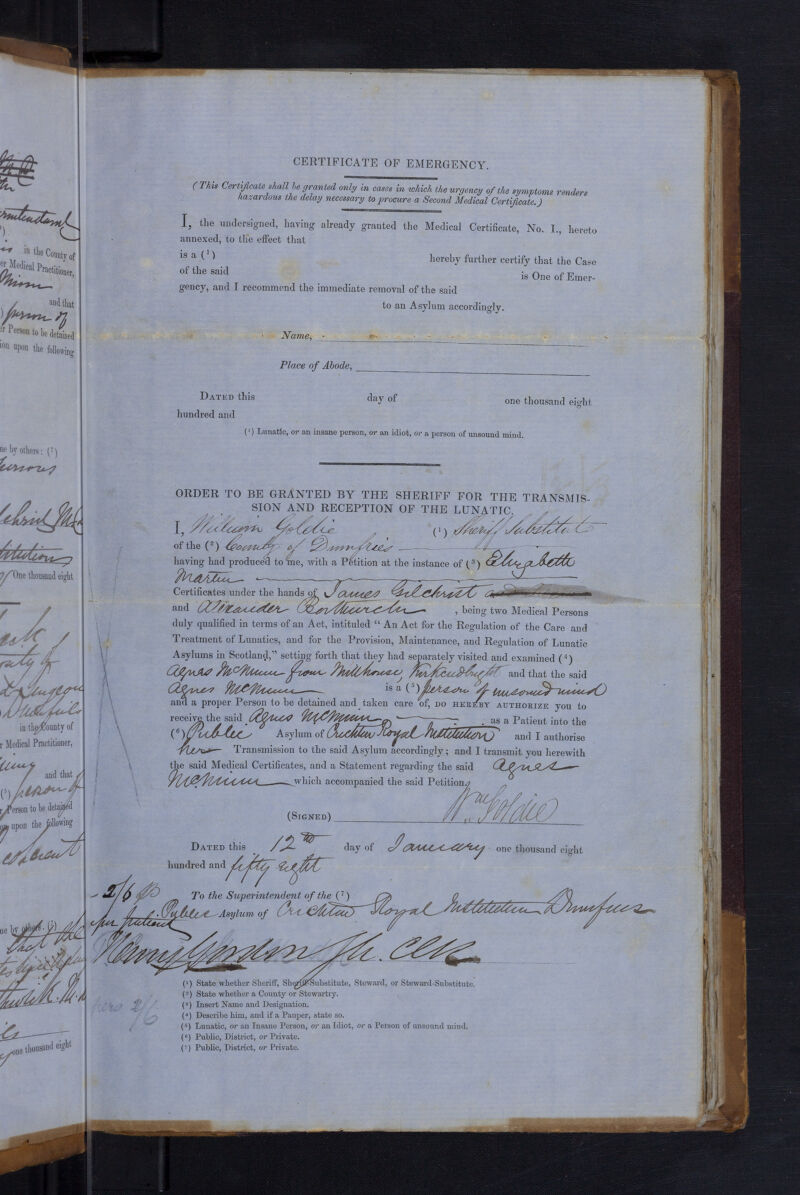 CERTIFICATE OF EMERGENCY.
(This Certificate shall be granted only in cases in which the urgency of the symptoms renders
hazardous the delay necessary to procure a Second Medical Certificate.)
I, the undersigned, having already granted the Medical Certificate, No. I., hereto
annexed, to the effect that
is a (¹) hereby further certify that the Case
of the said is One of Emer-
gency, and I recommend the immediate removal of the said
to an Asylum accordingly.
Name,
Place of Abode,
DATED this day of one thousand eight
hundred and
(¹) Lunatic, or an insane person, or an idiot, or a person of unsound mind.
ORDER TO BE GRANTED BY THE SHERIFF FOR THE TRANSMIS-
SION AND RECEPTION OF THE LUNATIC.
I, William Goldie (¹) Sheriff Substitute
of the (²) County of Dumfries
having had produced to me, with a Petition at the instance of (³) Elizabeth
Martin
Certificates under the hands of James Gilchrist
and Alexander Borthwick, being two Medical Persons
duly qualified in terms of an Act, intituled “An Act for the Regulation of the Care and
Treatment of Lunatics, and for the Provision, Maintenance, and Regulation of Lunatic
Asylums in Scotland,” setting forth that they had separately visited and examined (⁴)
Agnes McMinn from Millhouse, Kirkcudbright and that the said
Agnes McMinn is a (⁵) person of unsound mind
and a proper Person to be detained and taken care of, DO HEREBY AUTHORIZE you to
receive the said Agnes McMinn, as a Patient into the
(⁶) Public Asylum of Crichton Royal Institution and I authorise
her Transmission to the said Asylum accordingly; and I transmit you herewith
the said Medical Certificates, and a Statement regarding the said Agnes
McMinn which accompanied the said Petition.
(SIGNED) Wm Goldie
DATED this 12th day of January one thousand eight
hundred and fifty eight
2/6
To the Superintendent of the (⁷)
per patient
Public Asylum of Crichton Royal Institution Dumfries
Henry Gordon Sh. Clk
(¹) State whether Sheriff, Sheriff-Substitute, Steward, or Steward-Substitute.
(²) State whether a County or Stewartry.
(³) Insert Name and Designation.
(⁴) Describe him, and if a Pauper, state so.
(⁵) Lunatic, or an Insane Person, or an Idiot, or a Person of unsound mind.
(⁶) Public, District, or Private.
(⁷) Public, District, or Private.
2/6
in the County of
Medical Practitioner,
and that
person of
Person to be detained
upon the following
by others: (⁷)
One thousand eight
in the County of
Medical Practitioner,
and that
person of
Person to be detained
upon the following
by others. (⁷)
that she
one thousand eight